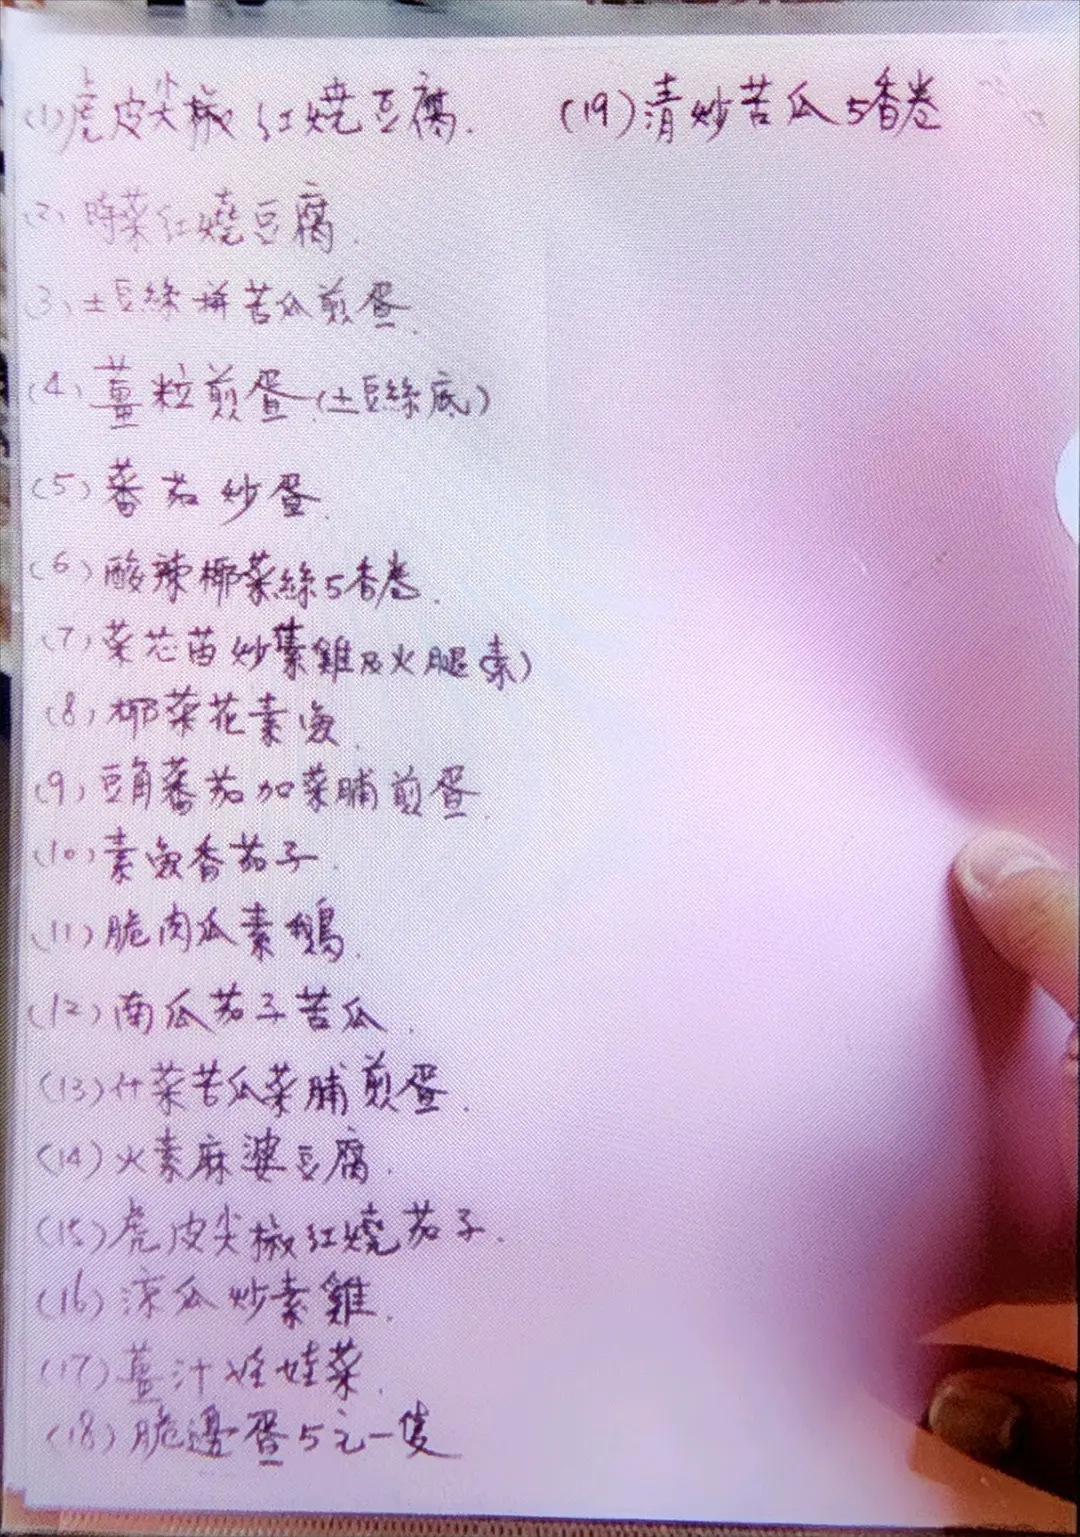 (1)虎皮尖椒紅燒豆腐.
(2)時菜紅燒豆腐.
(3)土豆絲拼苦瓜煎蛋.
(4)薑粒煎蛋(土豆絲底)
(5)蕃茄炒蛋.
(6)酸辣椰菜絲5香卷.
(7)菜芯苗炒素雞及火腿(素)
(8)椰菜花素魚.
(9)豆角蕃茄加菜脯煎蛋.
(10)素魚香茄子.
(11)脆肉瓜素鵝.
(12)南瓜茄子苦瓜.
(13)什菜苦瓜菜脯煎蛋.
(14)火素麻婆豆腐.
(15)虎皮尖椒紅燒茄子.
(16)涼瓜炒素雞.
(17)薑汁娃娃菜.
(18)脆邊蛋5元一隻
(19)清炒苦瓜5香卷